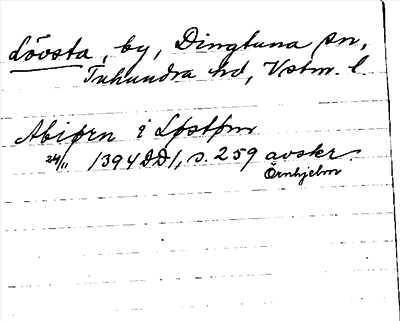 Lövsta, by, Dingtuna sn,
Tuhundra hd, Vstm. l
Abiørn i Løstøm
24/11 1394 DD1, s. 259 avskr.
Örnhjelm